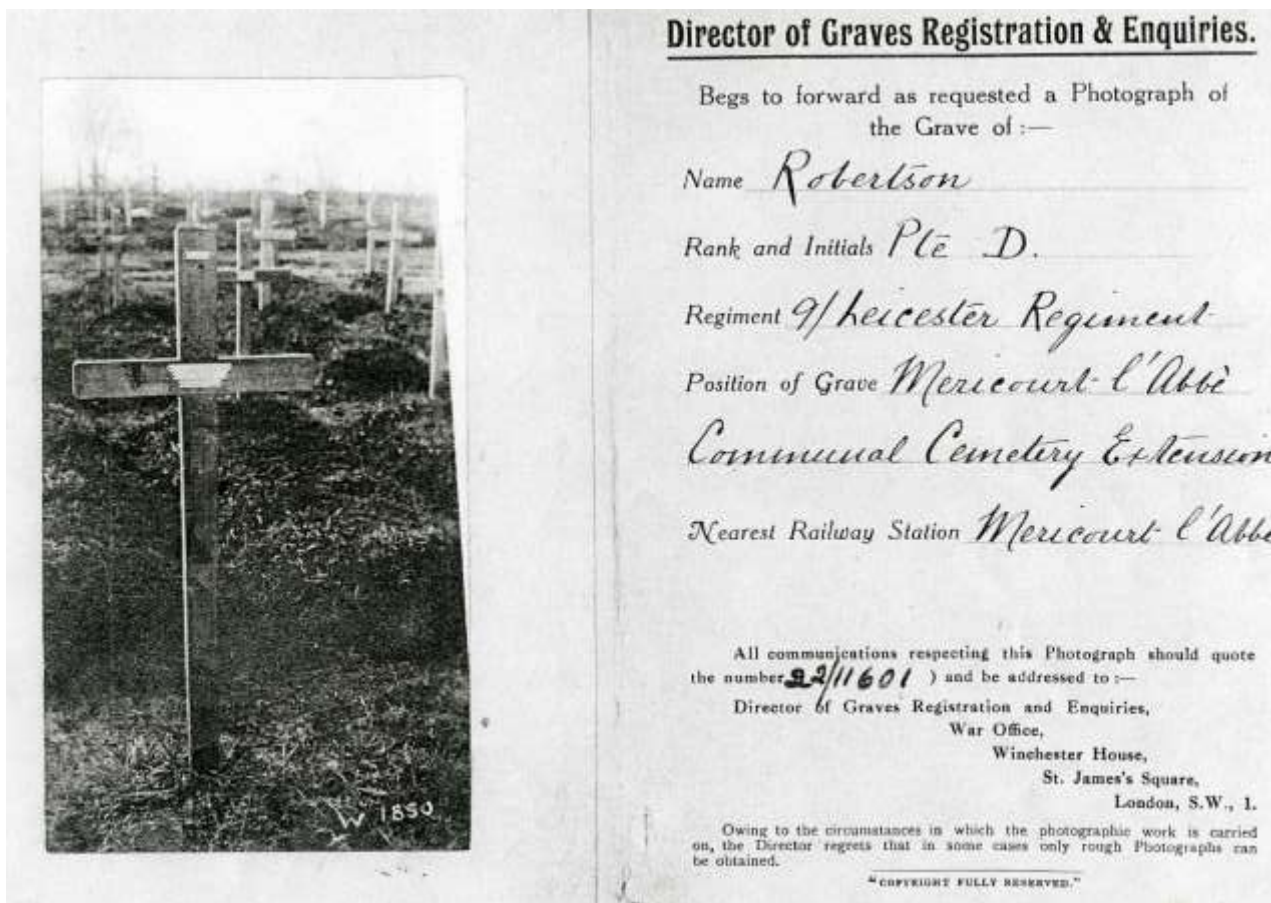 W 1850
Director of Graves Registration & Enquiries.
Begs to forward as requested a Photograph of
the Grave of :—
Name Robertson
Rank and Initials Pte D.
Regiment 9/Leicester Regiment
Position of Grave Mericourt-l'Abbè
Communal Cemetery Extension
Nearest Railway Station Mericourt l'Abbe
All communications respecting this Photograph should quote
the number 22/11601 ) and be addressed to :—
Director of Graves Registration and Enquiries,
War Office,
Winchester House,
St. James's Square,
London, S.W., 1.
Owing to the circumstances in which the photographic work is carried
on, the Director regrets that in some cases only rough Photographs can
be obtained.
"COPYRIGHT FULLY RESERVED."